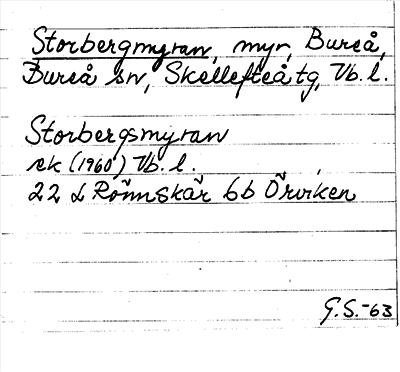 Storbergmyran, myr, Bureå,
Bureå sn, Skellefteå tg, Vb. l.
Storbergsmyran
ek (1960) Vb. l.
22 L Rönnskär 6b Örviken
G.S.-63